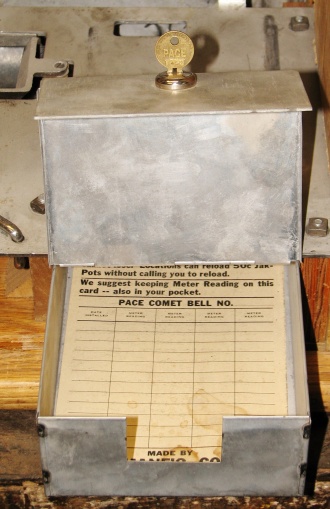 PACE
Locations can reload 50c Jak-
Pots without calling you to reload.
We suggest keeping Meter Reading on this
card -- also in your pocket.
PACE COMET BELL NO.
DATE INSTALLED METER READING METER READING METER READING METER READING
MADE BY